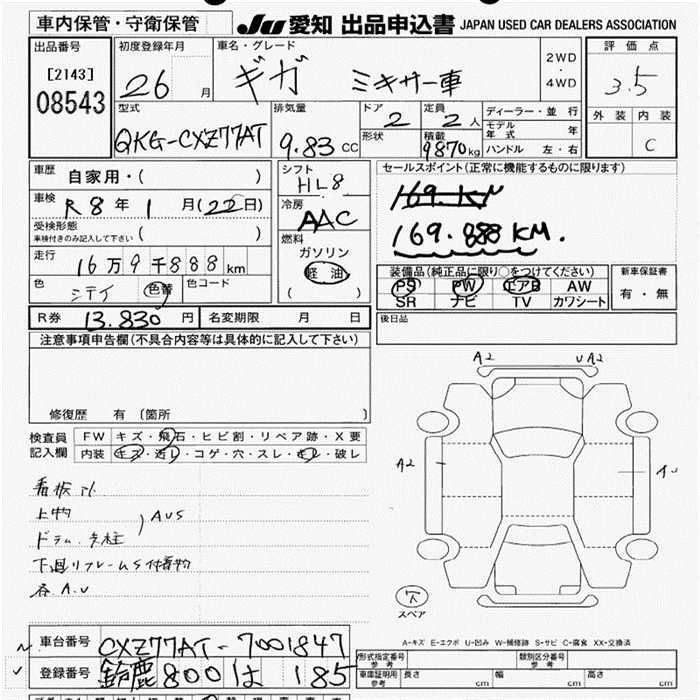 車内保管・守衛保管
JU 愛知 出品申込書 JAPAN USED CAR DEALERS ASSOCIATION
出品番号
[2143]
08543
初度登録年月
26 月
車名・グレード
ギガ ミキサー車
2WD
・
4WD
評価点
3.5
外装 内装
C
型式
QKG-CXZ77AT
排気量
9.83 CC
ドア
2
形状
定員
2 人
積載
9870 kg
ディーラー・並行
モデル年式 年
ハンドル 左・右
車歴 自家用・( )
車検 R8年 1月(22日)
受検形態
車検付きのみ記入して下さい ( )
走行
16万9千888km
色
色替
色コード
シフト
HL8
冷房
AAC
燃料
ガソリン
軽油
( )
セールスポイント(正常に機能するものに限ります)
169.888KM.
装備品(純正品に限り○をつけてください)
PS PW エアB AW
SR ナビ TV カワシート
新車保証書
有・無
R券 13.830 円 名変期限 月 日
後日品
注意事項申告欄(不具合内容等は具体的に記入して下さい)
修復歴 有 〔箇所 〕
検査員
記入欄
FW キズ・飛石・ヒビ割・リペア跡・X要
内装 キズ・汚レ・コゲ・穴・スレ・キレ・破レ
上物
AUS
A2 UA2
A2
AU
スペア
A-キズ E-エクボ U-凹み W-補修跡 S-サビ C-腐食 XX-交換済
車台番号 CXZ77AT-7001847
登録番号 鈴鹿800は185
形式指定番号
参考
類別区分番号
参考
車庫証明用
参考
長さ cm 幅 cm 高さ cm